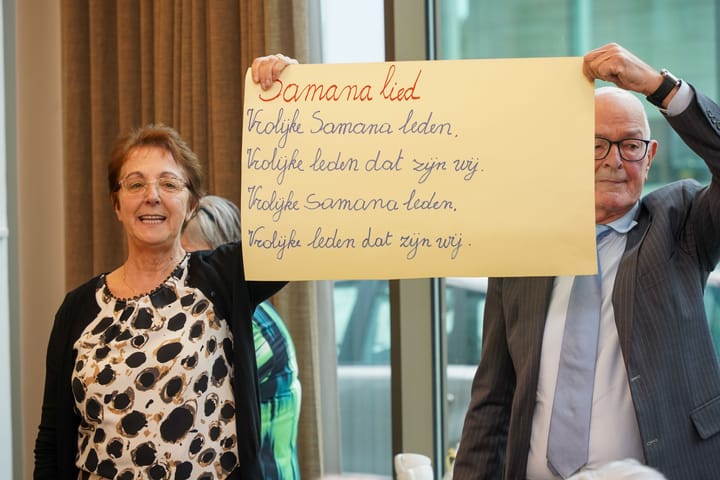 Samana lied
Vrolijke Samana leden,
Vrolijke leden dat zijn wij.
Vrolijke Samana leden,
Vrolijke leden dat zijn wij.